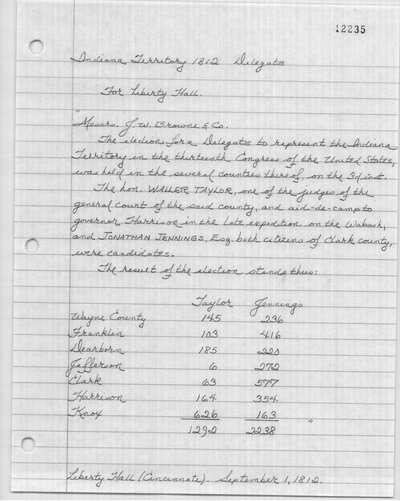 12235
Indiana Territory 1812 Delegate
For Liberty Hall.
"
Messrs. J. W. Browne & Co.
The election for a Delegate to represent the Indiana
Territory in the thirteenth Congress of the United States,
was held in the several counties thereof, on the 3d inst.
The hon. WALLER TAYLOR, one of the judges of the
general court of the said county, and aid-de-camp to
governor Harrison in the late expedition on the Wabash,
and JONATHAN JENNINGS, Esq. both citizens of Clark county,
were candidates.
The result of the election stands thus:
Taylor Jennings
Wayne County 145 236
Franklin 103 416
Dearborn 185 220
Jefferson 6 272
Clark 63 577
Harrison 164 354
Knox 626 163
1292 2238 "
Liberty Hall (Cincinnati). September 1, 1812.